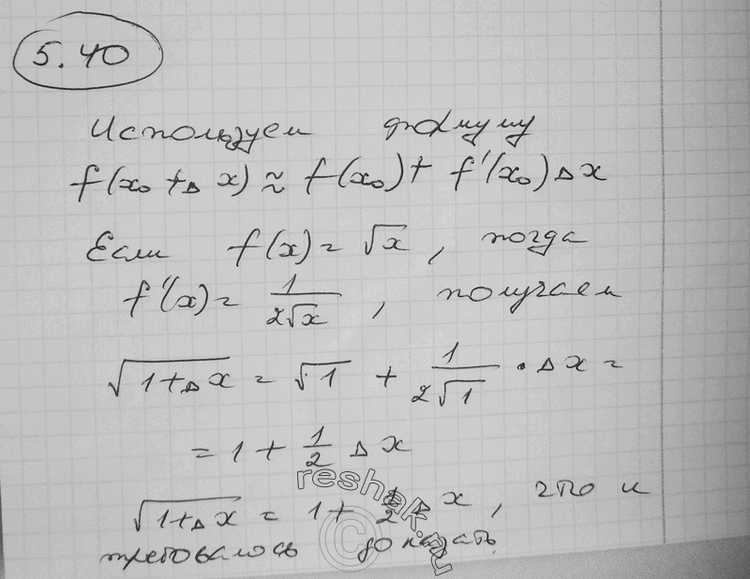 5.40
Используем формулу
f(x₀ + Δx) ≈ f(x₀) + f'(x₀) Δx
Если f(x) = √x, тогда
f'(x) = 1/(2√x), получаем
√(1+Δx) = √1 + 1/(2√1) · Δx =
= 1 + 1/2 Δx
√(1+Δx) = 1 + 1/2 Δx, что и
требовалось доказать.
reshak.ru
©